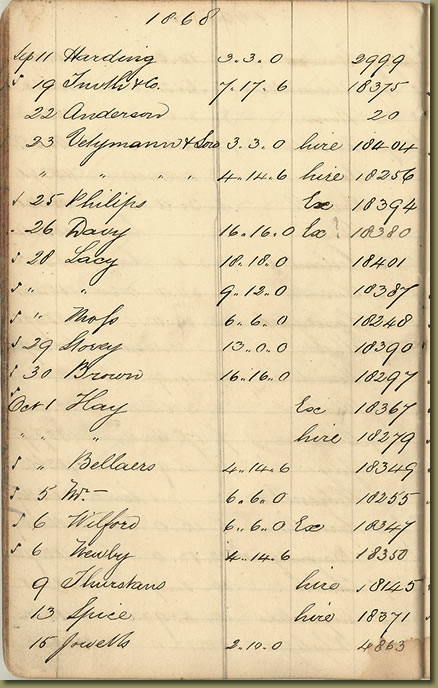 1868
Sep 11 Harding 3..3..0 2999
s 19 Smith & Co. 7..17..6 18375
22 Anderson 20
23 & Son 3..3..0 hire 18404
" " " " 4..14..6 hire 18256
s 25 Philips Ex 18394
26 Davy 16..16..0 Ex ? 18380
s 28 Lacy 18..18..0 18401
s " " 9..12..0 18387
s " Moss 6..6..0 18248
s 29 Storey 13..0..0 18390
s 30 Brown 16..16..0 18297
Oct 1 Hay Ex 18367
" " hire 18279
s " Bellaers 4..14..6 18349
s 5 Mr — 6..6..0 18255
s 6 Wilford 6..6..0 Ex 18347
s 6 Newby 4..14..6 18350
9 Thurstans hire 18145
13 Spice hire 18371
15 Jowetts 2..10..0 4863